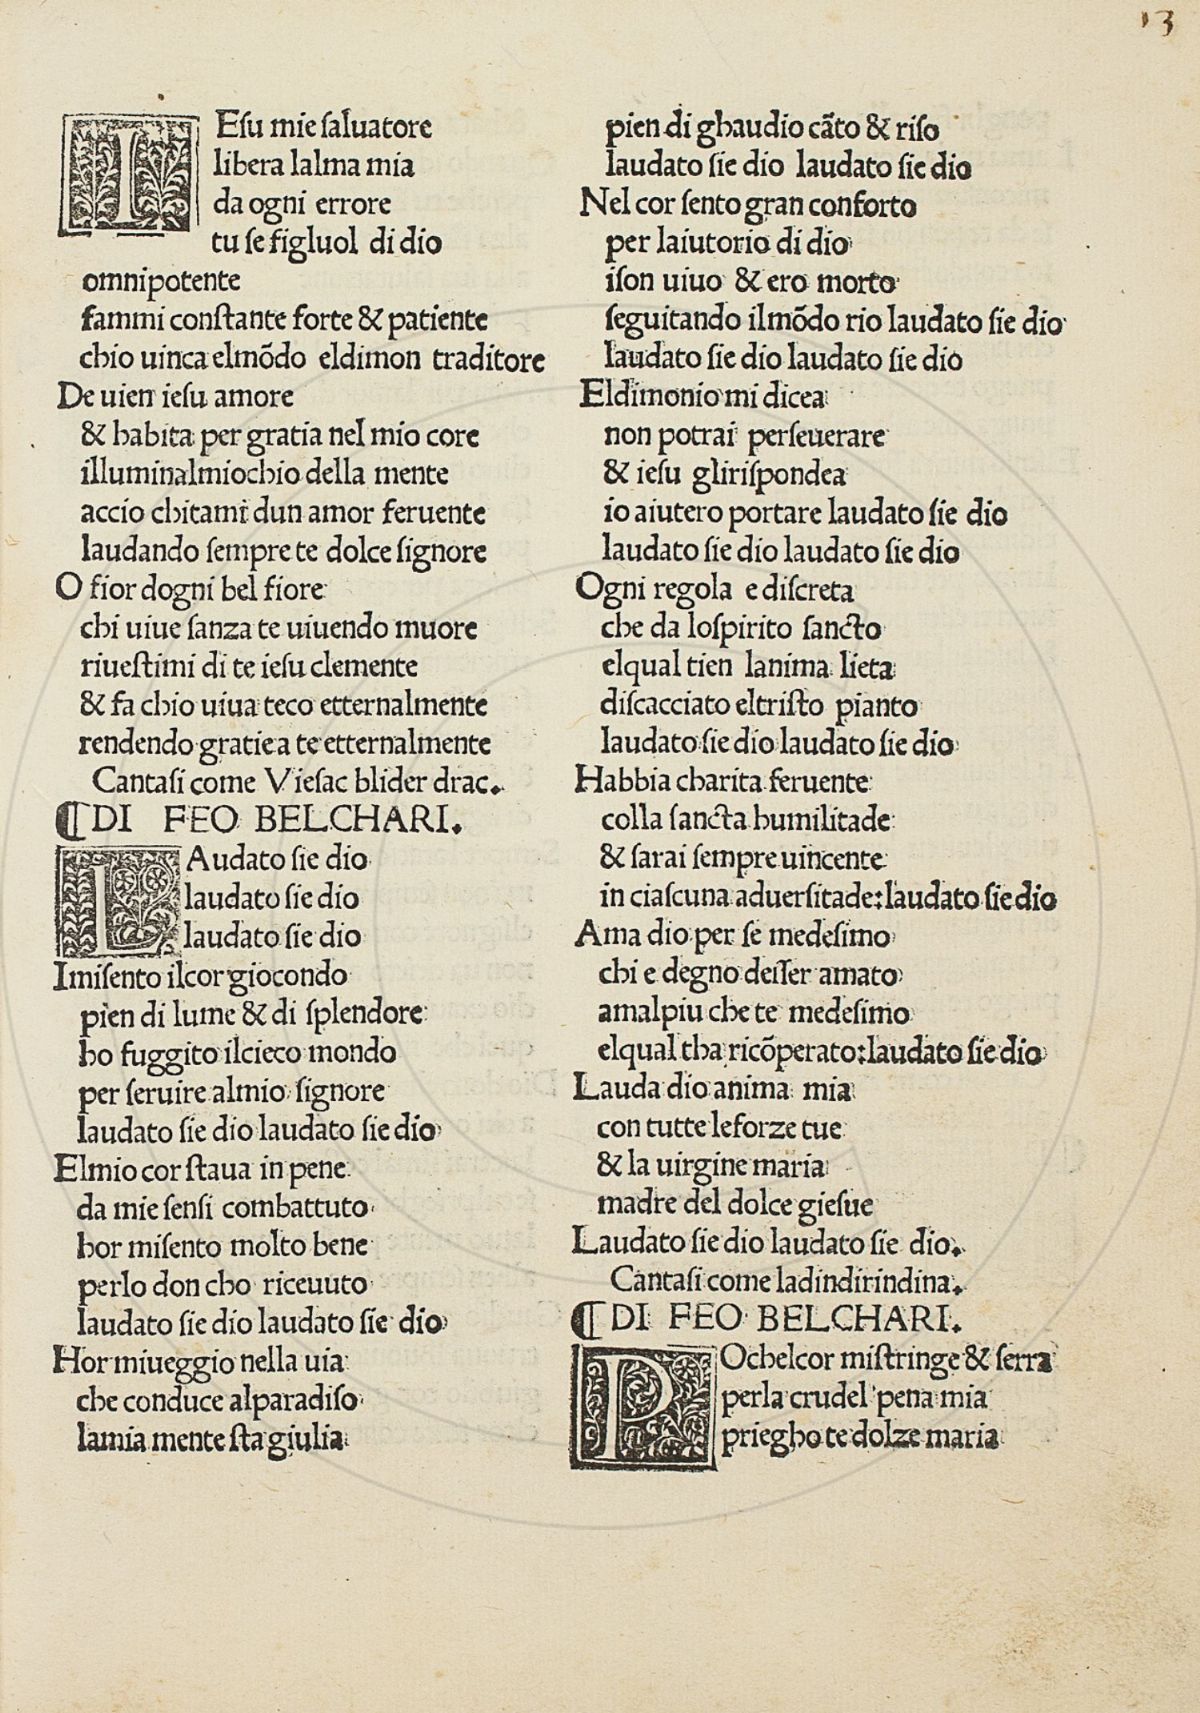 13
IEsu mie saluatore
libera lalma mia
da ogni errore
tu se figluol di dio
omnipotente
fammi constante forte & patiente
chio uinca elmōdo eldimon traditore
De uien iesu amore
& habita per gratia nel mio core
illuminalmiochio della mente
accio chitami dun amor feruente
laudando sempre te dolce signore
O fior dogni bel fiore
chi uiue sanza te uiuendo muore
riuestimi di te iesu clemente
& fa chio uiua teco etternalmente
rendendo gratie a te etternalmente
Cantasi come Viesac blider drac.
¶DI FEO BELCHARI.
LAudato sie dio
laudato sie dio
laudato sie dio
Imisento ilcor giocondo
pien di lume & di splendore
ho fuggito ilcieco mondo
per seruire almio signore
laudato sie dio laudato sie dio
Elmio cor staua in pene
da mie sensi combattuto
hor misento molto bene
perlo don cho riceuuto
laudato sie dio laudato sie dio
Hor miueggio nella uia
che conduce alparadiso
lamia mente sta giulia
pien di ghaudio cāto & riso
laudato sie dio laudato sie dio
Nel cor sento gran conforto
per laiutorio di dio
ison uiuo & ero morto
seguitando ilmōdo rio laudato sie dio
laudato sie dio laudato sie dio
Eldimonio mi dicea
non potrai perseuerare
& iesu glirispondea
io aiutero portare laudato sie dio
laudato sie dio laudato sie dio
Ogni regola e discreta
che da lospirito sancto
elqual tien lanima lieta
discacciato eltristo pianto
laudato sie dio laudato sie dio
Habbia charita feruente
colla sancta humilitade
& sarai sempre uincente
in ciascuna aduersitade:laudato sie dio
Ama dio per se medesimo
chi e degno desser amato
amalpiu che te medesimo
elqual tha ricōperato:laudato sie dio
Lauda dio anima mia
con tutte leforze tue
& la uirgine maria
madre del dolce giesue
Laudato sie dio laudato sie dio.
Cantasi come ladindirindina.
¶DI FEO BELCHARI.
POchelcor mistringe & serra
perla crudel pena mia
priegho te dolze maria